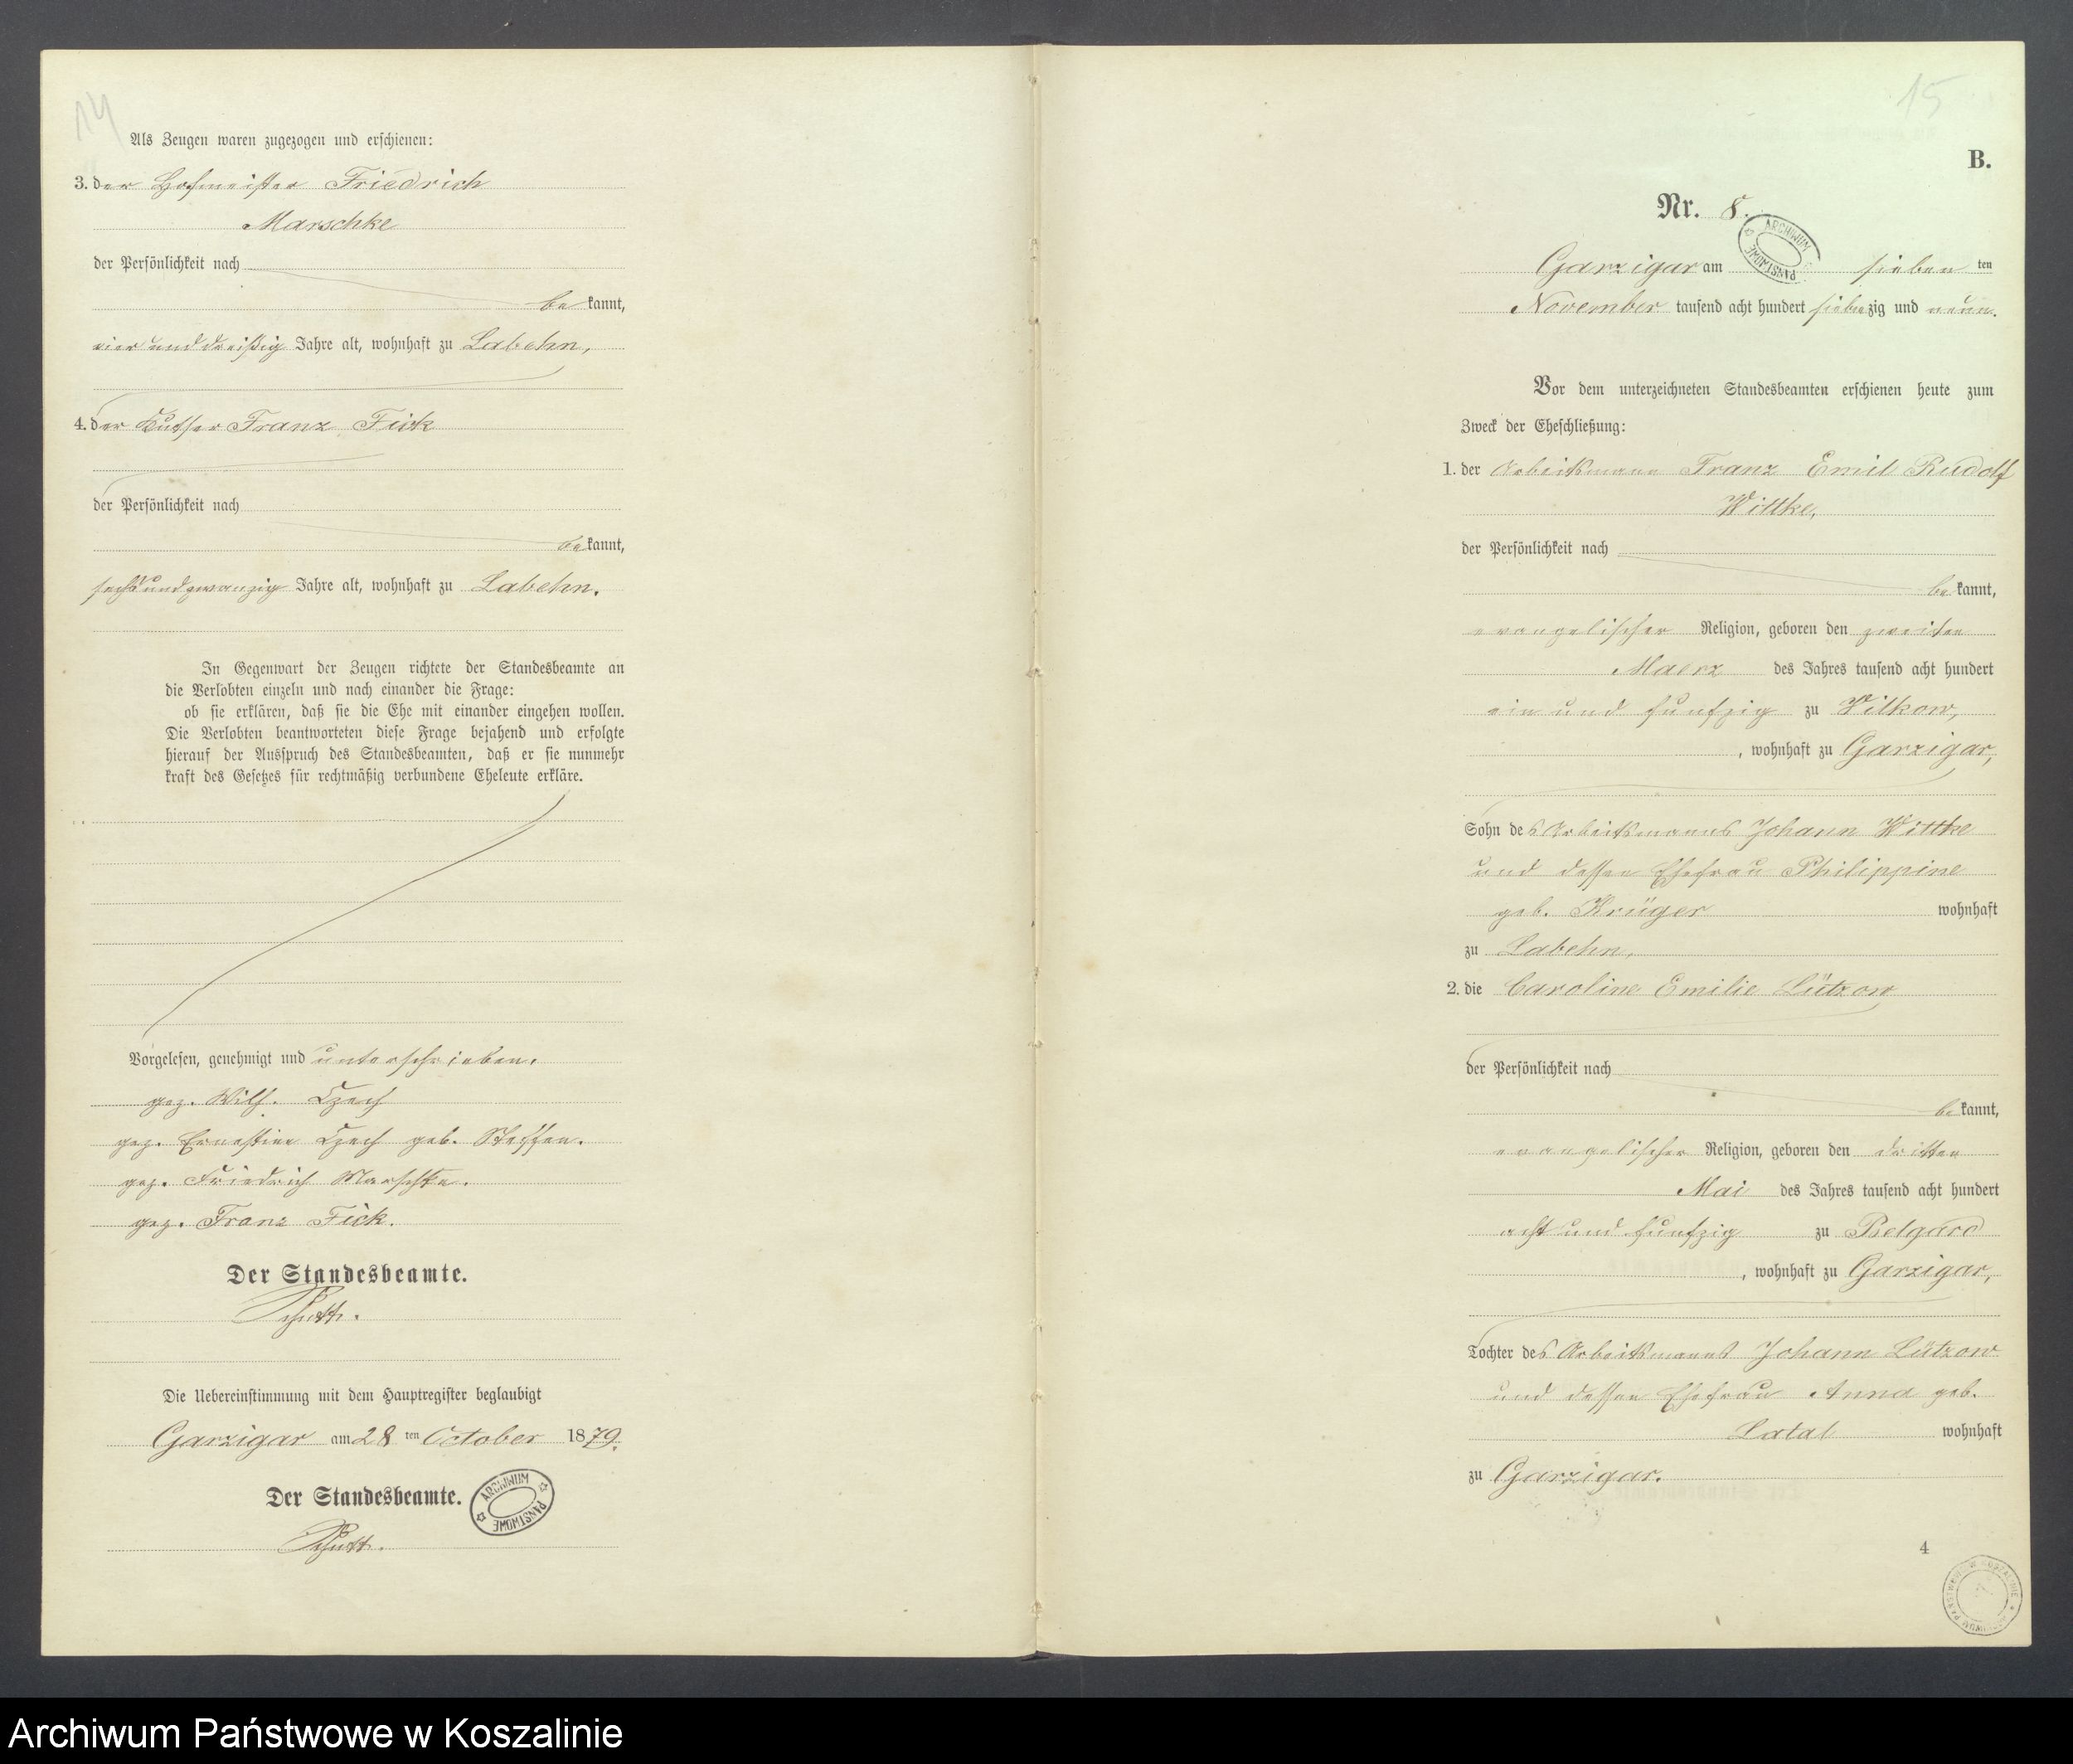 14
Als Zeugen waren zugezogen und erschienen:
3. der Hofmeister Friedrich
Marschke
der Persönlichkeit nach
bekannt,
vier und dreißig Jahre alt, wohnhaft zu Labehn,
4. der Kutser Franz Fick
der Persönlichkeit nach
bekannt,
sechsundzwanzig Jahre alt, wohnhaft zu Labehn.
In Gegenwart der Zeugen richtete der Standesbeamte an
die Verlobten einzeln und nach einander die Frage:
ob sie erklären, daß sie die Ehe mit einander eingehen wollen.
Die Verlobten beantworteten diese Frage bejahend und erfolgte
hierauf der Ausspruch des Standesbeamten, daß er sie nunmehr
kraft des Gesetzes für rechtmäßig verbundene Eheleute erkläre.
Vorgelesen, genehmigt und unterschrieben.
gez. Wilh. Czech
gez. Ernestine Czech geb. Steffen.
gez. Friedrich Marschke.
gez. Franz Fick.
Der Standesbeamte.
Die Uebereinstimmung mit dem Hauptregister beglaubigt
Garzigar am 28 ten October 1879.
Der Standesbeamte.
ARCHIWUM PAŃSTWOWE
15
B.
Nr. 8.
ARCHIWUM PAŃSTWOWE
Garzigar am sieben ten
November tausend acht hundert siebenzig und neun.
Vor dem unterzeichneten Standesbeamten erschienen heute zum
Zweck der Eheschließung:
1. der Arbeitsmann Franz Emil Rudolf
Wittke,
der Persönlichkeit nach
bekannt,
evangelischer Religion, geboren den zweiten
Maerz des Jahres tausend acht hundert
ein und funfzig zu Vilkow,
, wohnhaft zu Garzigar,
Sohn des Arbeitsmanns Johann Wittke
und dessen Ehefrau Philippine
geb. Krüger wohnhaft
zu Labehn,
2. die Caroline Emilie Lützow
der Persönlichkeit nach
bekannt,
evangelischer Religion, geboren den dritten
Mai des Jahres tausend acht hundert
acht und funfzig zu Belgard
, wohnhaft zu Garzigar,
Tochter des Arbeitsmanns Johann Lützow
und dessen Ehefrau Anna geb.
Latal wohnhaft
zu Garzigar.
4
Archiwum Państwowe w Koszalinie